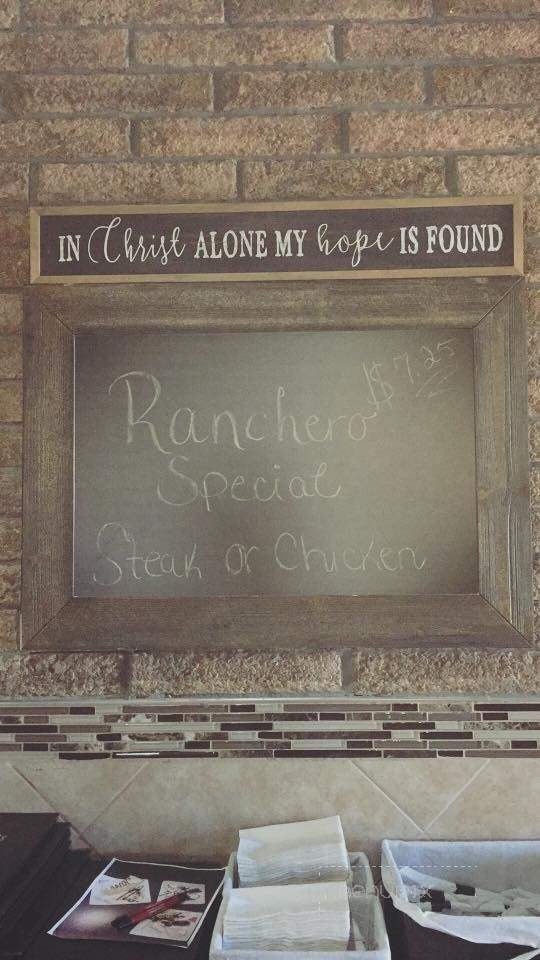 IN Christ ALONE MY hope IS FOUND
$7.25
Ranchero
Special
Steak or Chicken